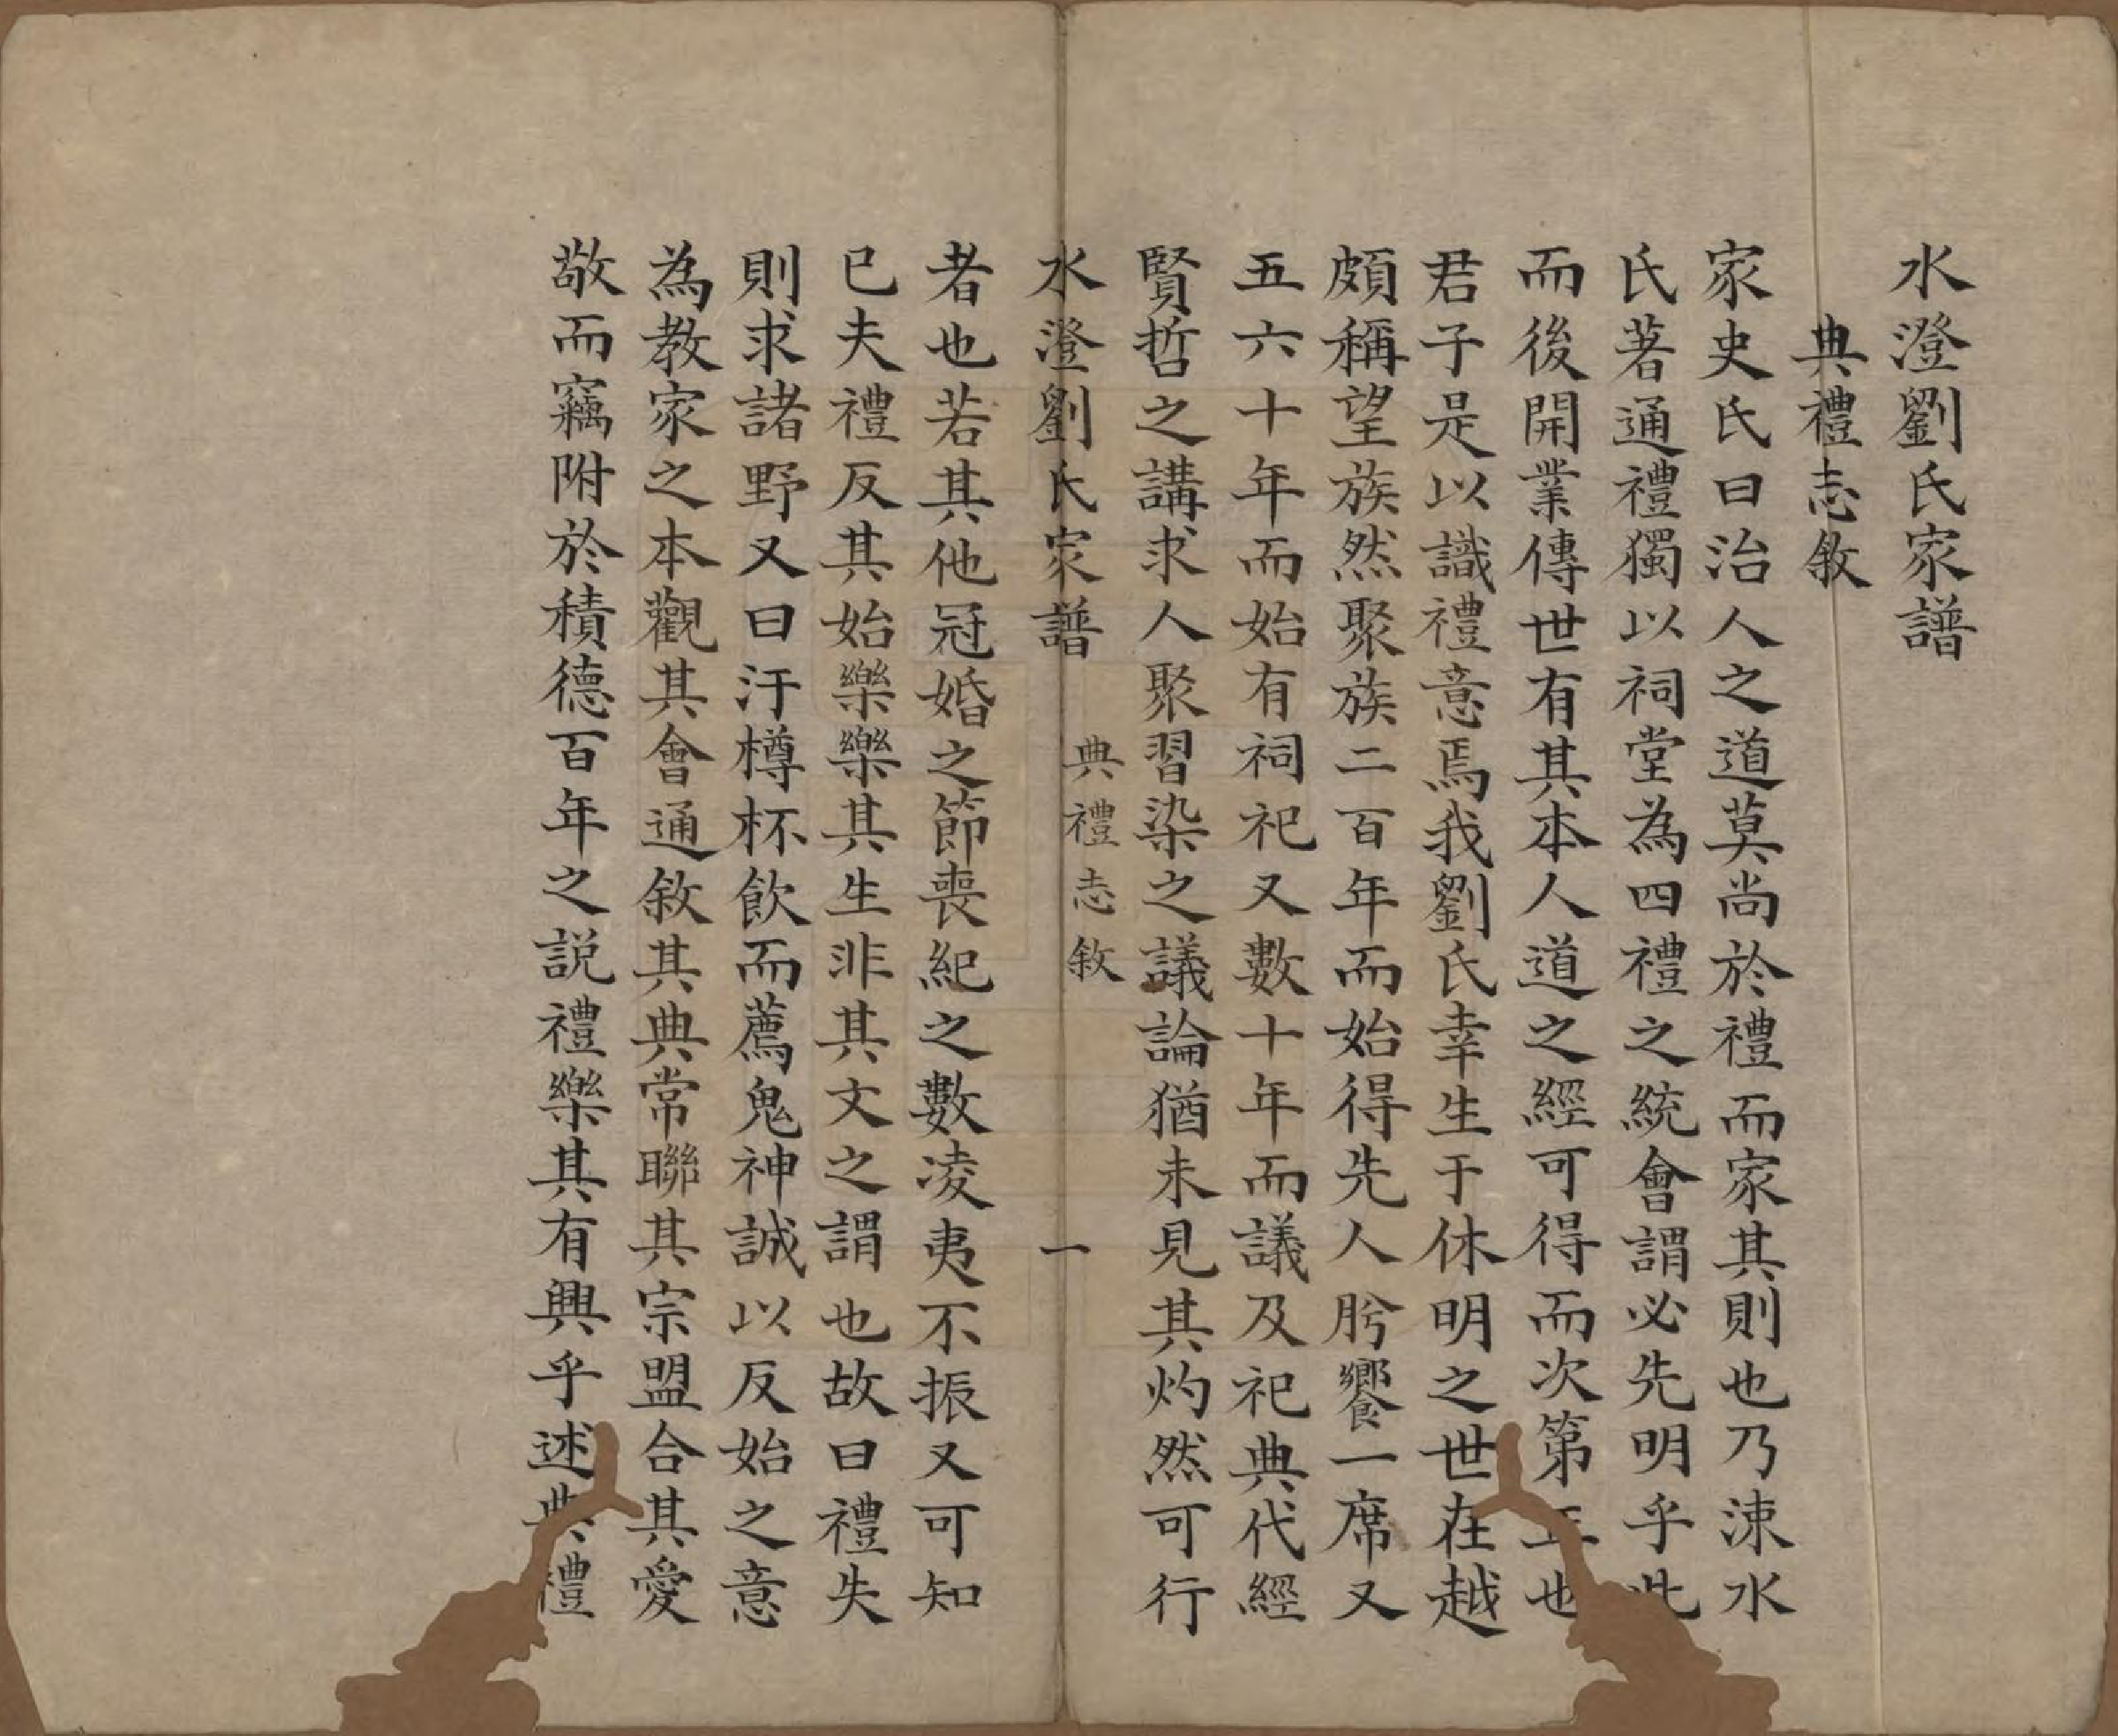 水澄劉氏家譜
典禮志敘
家史氏曰治人之道莫尚於禮而家其則也乃涑水
氏著通禮獨以祠堂為四禮之統會謂必先明乎此
而後開業傳世有其本人道之經可得而次第正也
君子是以識禮意焉我劉氏幸生于休明之世在越
頗稱望族然聚族二百年而始得先人肹饗一席又
五六十年而始有祠祀又數十年而議及祀典代經
賢哲之講求人聚習染之議論猶未見其灼然可行
水澄劉氏家譜 典禮志敘 一
者也若其他冠婚之節喪紀之數凌夷不振又可知
已夫禮反其始樂樂其生非其文之謂也故曰禮失
則求諸野又曰汙樽杯飲而薦鬼神誠以反始之意
為教家之本觀其會通敘其典常聯其宗盟合其愛
敬而竊附於積德百年之説禮樂其有興乎述典禮